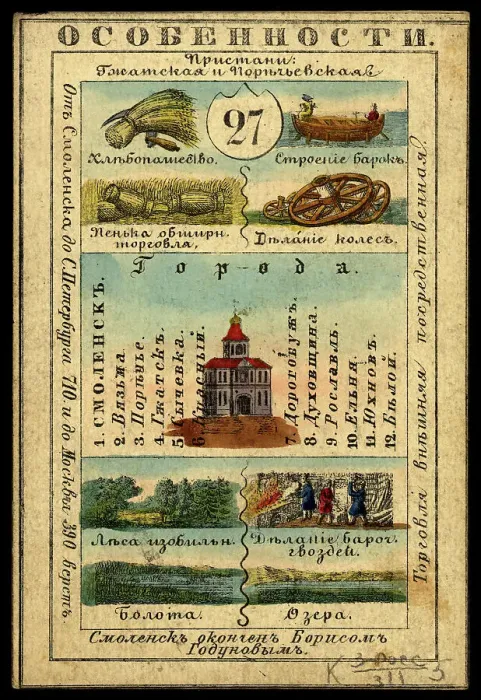 ОСОБЕННОСТИ.
Пристани:
Гжатская и Порѣчьевская
27
Хлѣбопашество.
Строеніе барокъ.
Пенька обширн.
торговля,
Дѣланіе колесъ.
Города.
1. СМОЛЕНСКЪ.
2. Вязьма.
3. Порѣчье.
4. Гжатскъ.
5. Сычевка.
6. Красный.
7. Дорогобужъ.
8. Духовщина.
9. Рославль.
10. Ельня.
11. Юхновъ.
12. Бѣлой.
Лѣса изобильн.
Дѣланіе бароч.
гвоздей.
Болота.
Озера.
Смоленскъ оконченъ Борисомъ
Годуновымъ.
Отъ Смоленска до С.Петербурга 710. и до Москвы 390 верстъ.
Торговля внѣшняя посредственная.
К 3 Росс 5
311